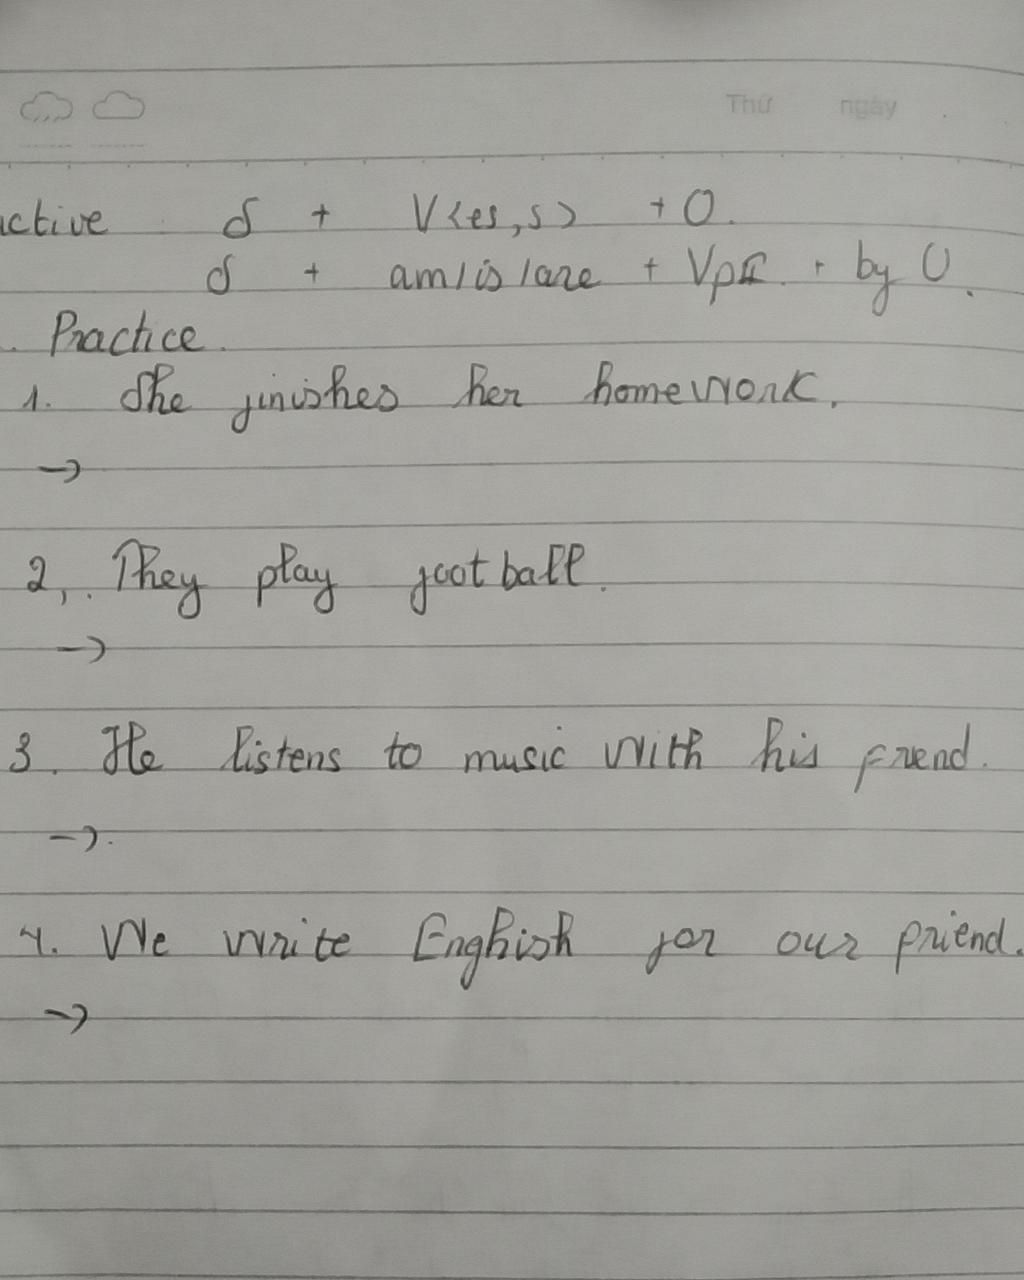 Thứ ngày
active S + V<es,s> + O.
S + am/is/are + VpII + by O.
. Practice.
1. She finishes her homework.
→
2, . They play football.
→
3. He listens to music with his friend.
→.
4. We write English for our friend.
→